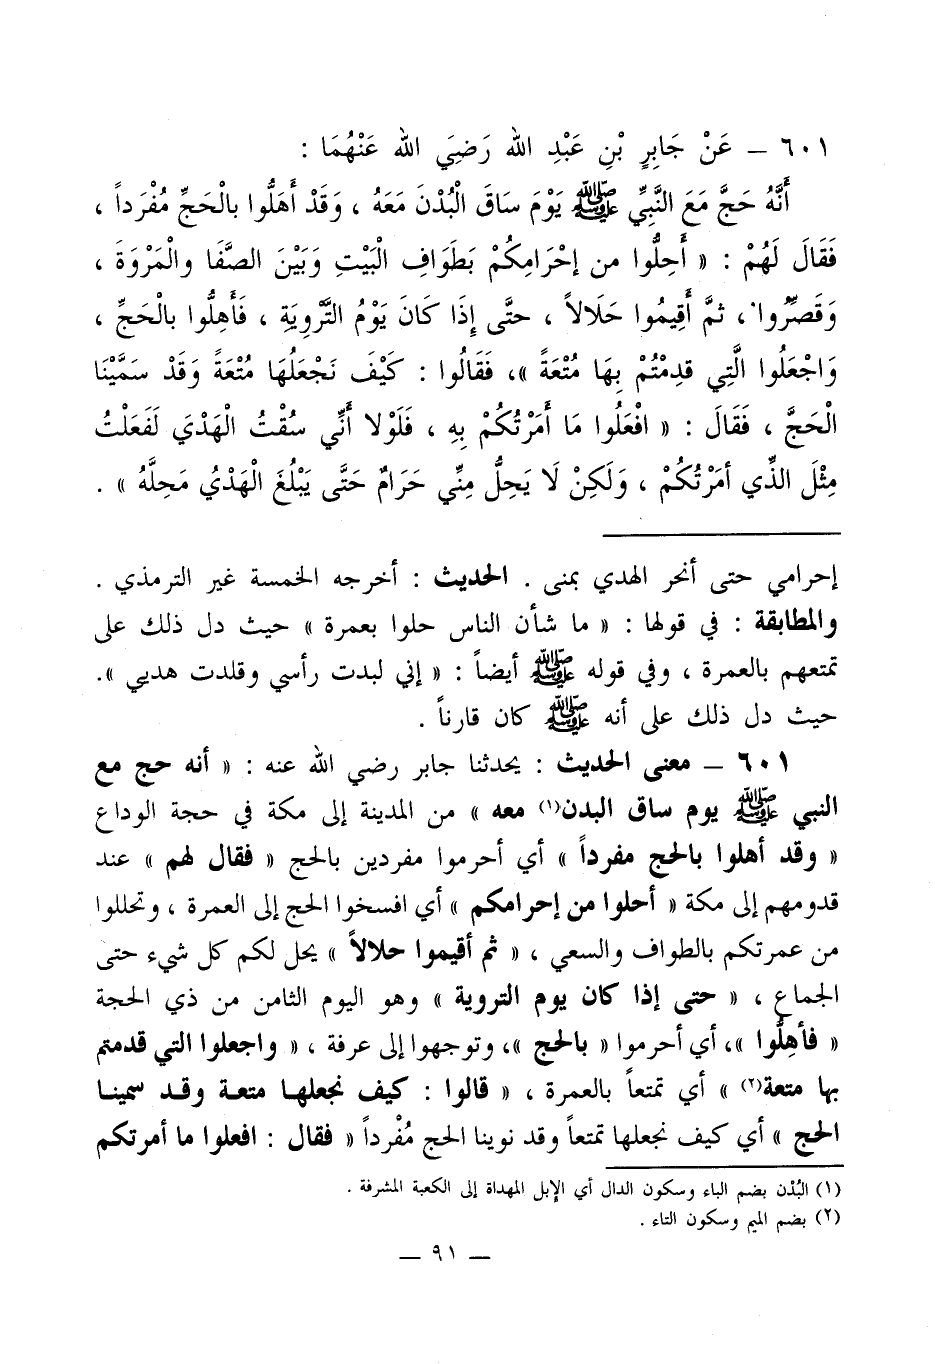 ٦٠١ ــ عَنْ جَابِرِ بْنِ عَبْدِ اللهِ رَضِيَ اللهُ عَنْهُمَا :
أَنَّهُ حَجَّ مَعَ النَّبِيِّ ﷺ يَوْمَ سَاقَ الْبُدْنَ مَعَهُ ، وَقَدْ أَهَلُّوا بالْحَجِّ مُفْرَداً ،
فَقَالَ لَهُمْ : « أَحِلُّوا من إحْرَامِكُمْ بَطَوَافِ الْبَيْتِ وَبَيْنَ الصَّفَا والْمَرْوَةَ ،
وَقَصِّرُوا ، ثمَّ أَقِيمُوا حَلَالاً ، حتَّى إِذَا كَانَ يَوْمُ التَّرْوِيَةِ ، فَأَهِلُّوا بالْحَجِّ ،
وَاجْعَلُوا الَّتِي قدِمْتُمْ بِهَا مُتْعَةً »، فَقَالُوا : كَيْفَ نَجْعَلُهَا مُتْعَةً وَقَدْ سَمَّيْنَا
الْحَجَّ ، فَقَالَ : « افْعَلُوا مَا أَمَرْتُكُمْ بِهِ ، فَلَوْلا أَنِّي سُقْتُ الْهَدْيَ لَفَعَلْتُ
مِثْلَ الذِّي أمَرْتُكُمْ ، وَلَكِنْ لَا يَحِلُّ مِنِّي حَرَامٌ حَتَّى يَبْلُغَ الْهَدْيُ مَحِلَّهُ » .
إحرامي حتى أنحر الهدي بمنى . الحديث : أخرجه الخمسة غير الترمذي .
والمطابقة : في قولها : « ما شأن الناس حلوا بعمرة » حيث دل ذلك على
تمتعهم بالعمرة ، وفي قوله ﷺ أيضاً : « إني لبدت رأسي وقلدت هديي ».
حيث دل ذلك على أنه ﷺ كان قارناً .
٦٠١ ــ معنى الحديث : يحدثنا جابر رضي الله عنه : « أنه حج مع
النبي ﷺ يوم ساق البدن(١) معه » من المدينة إلى مكة في حجة الوداع
« وقد أهلوا بالحج مفرداً » أي أحرموا مفردين بالحج « فقال لهم » عند
قدومهم إلى مكة « أحلوا من إحرامكم » أي افسخوا الحج إلى العمرة ، وتحللوا
من عمرتكم بالطواف والسعي ، « ثم أقيموا حلالاً » يحل لكم كل شيء حتى
الجماع ، « حتى إذا كان يوم التروية » وهو اليوم الثامن من ذي الحجة
« فأهِلُّوا »، أي أحرموا « بالحج »، وتوجهوا إلى عرفة ، « واجعلوا التي قدمتم
بها متعة(٢) » أي تمتعاً بالعمرة ، « قالوا : كيف نجعلها متعة وقد سمينا
الحج » أي كيف نجعلها تمتعاً وقد نوينا الحج مُفْرداً « فقال : افعلوا ما أمرتكم
(١) البُدْن بضم الباء وسكون الدال أي الإبل المهداة إلى الكعبة المشرفة .
(٢) بضم الميم وسكون التاء .
ــ ٩١ ــ